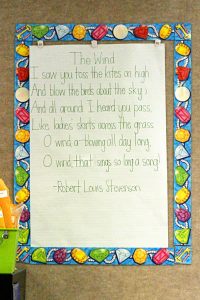 The Wind
I saw you toss the kites on high
And blow the birds about the sky;
And all around I heard you pass,
Like ladies' skirts across the grass
O wind, a-blowing all day long,
O wind, that sings so long a song!
-Robert Louis Stevenson